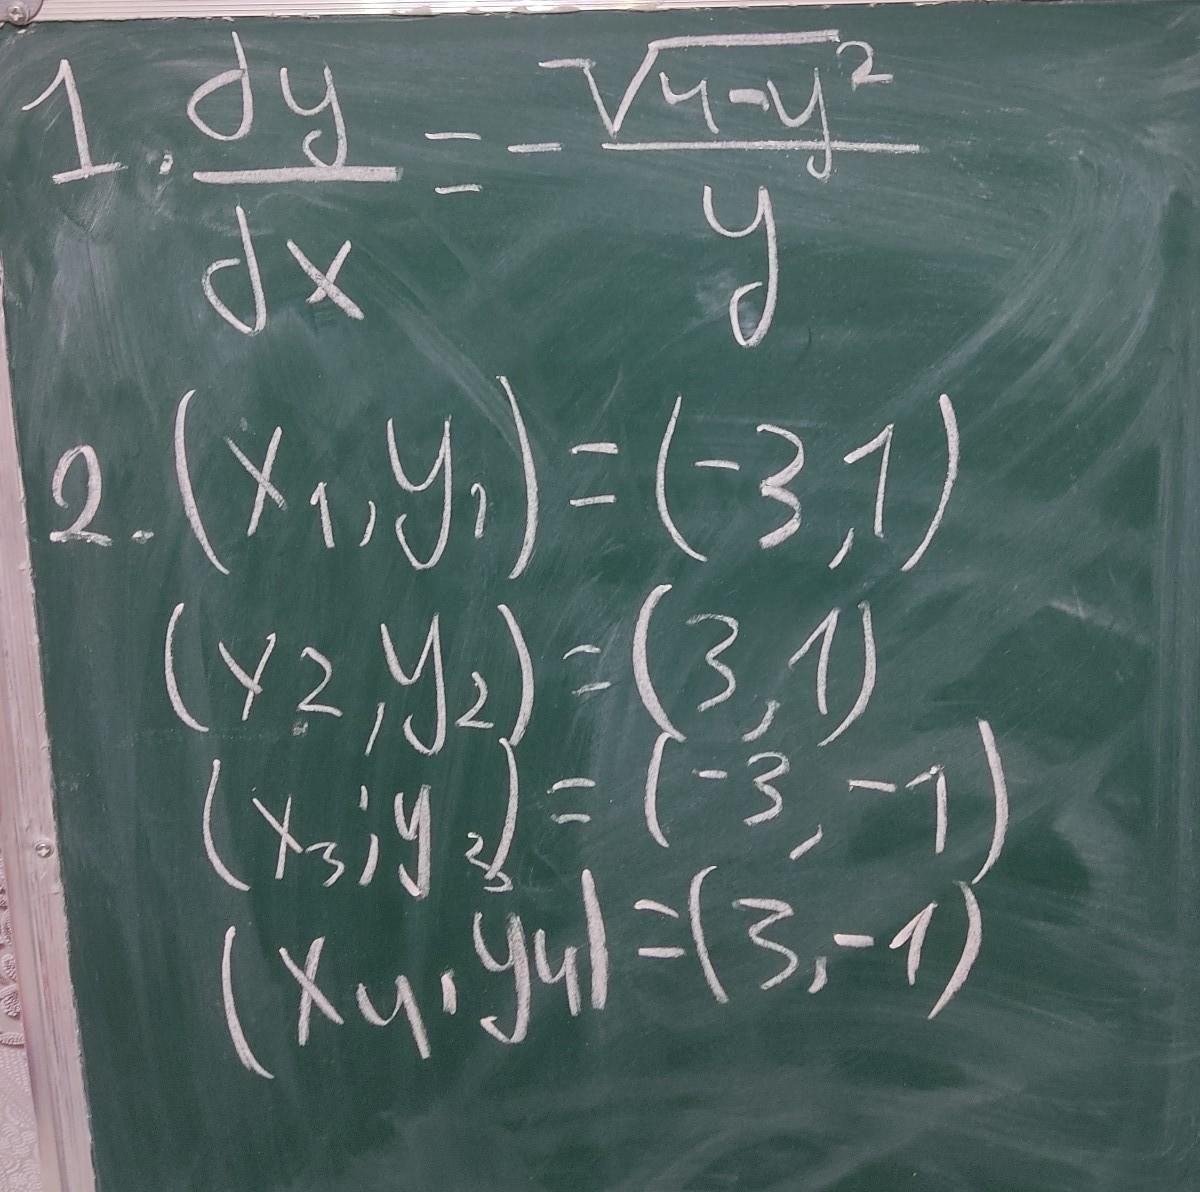 1. dy/dx = -√(4-y²)/y
2. (x₁, y₁) = (-3, 1)
(x₂, y₂) = (3, 1)
(x₃; y₃) = (-3, -1)
(x₄, y₄) = (3, -1)